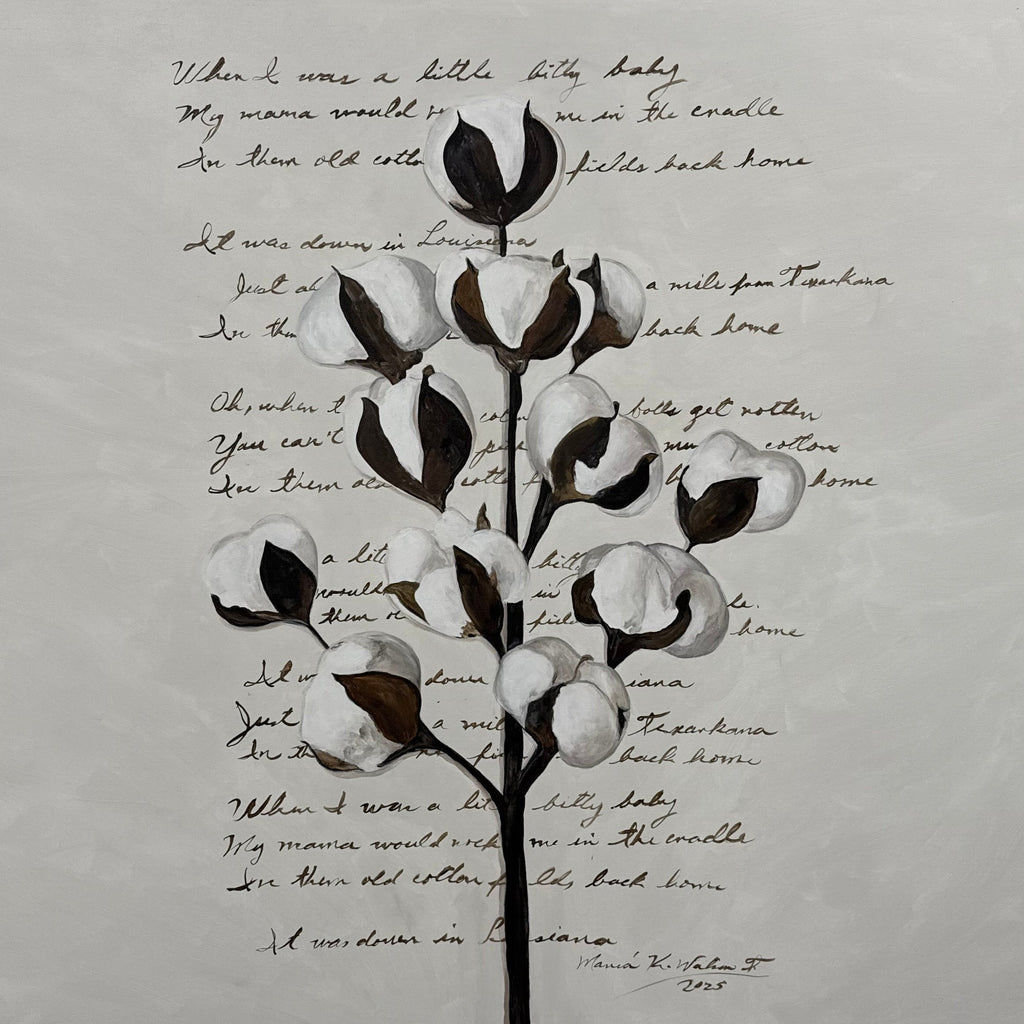 When I was a little bitty baby
My mama would me in the cradle
In them old cotto fields back home
It was down in Louisiana
Just a mile from Texarkana
In them back home
Oh, when t cotton bolls get rotten
You can't pick mu cotton
In them old cotto f b home
a litt bitty
would in le.
them o field home
It w down iana
Just a mil Texarkana
In th fi back home
When I was a lit bitty baby
My mama would rock me in the cradle
In them old cotton f lds back home
It was down in L siana
2025